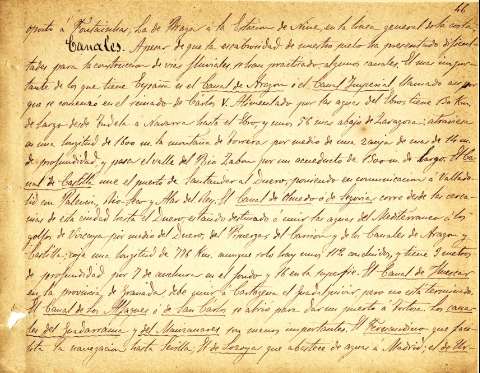 46
oporto á Pontecubas, ha de Braga á la Estacion de Nine, en la linea general de la costa.
Canales. Apesar de que la escabrosidad de nuestro suelo ha presentado dificul-
tades para la construccion de vias fluviales, se han practicado algunos canales. El mas impor-
tante de los que tiene España es el Canal de Aragon ó el Canal Imperial, llamado así por
que se comenzó en el reinado de Carlos V. Alimentado por las aguas del Ebro, tiene 150 Km.
de largo desde Tudela á Navarra hasta el Ebro y unos 56 mas abajo de Zaragoza; atraviesa
en una longitud de 1600 m. la montaña de Torrero por medio de una zanja de mas de 14 m.
de profundidad y pasa el valle del Rio Jalon por un acueducto de 1500 m. de largo. El Ca-
nal de Castilla une el puerto de Santander al Duero, poniendo en comunicacion á Vallado-
lid con Palencia, Rio-Seco y Alar del Rey. El Canal de Olmedo ó de Segovia corre desde las cerca-
nias de esta ciudad hasta el Duero, estando destinado á unir las aguas del Mediterraneo á los
golfos de Vizcaya por medio del Duero, del Pisuerga del Carrion y de los Canales de Aragon y
Castilla: coje una longitud de 776 Km. aunque solo hay unos 112 concluidos, y tiene 3 metros
de profundidad por 7 de anchura en el fondo y 16 en la superficie. El Canal de Huescar
en la provincia de Granada debe unir á Cartagena el Guadalquivir pero no está terminado.
El Canal de los Alfaques ó de San Carlos se abrió para dar un puerto á Tortosa. Los cana-
les del Guadarrama y del Manzanares son menos importantes. El Fernandino que faci-
lita la navegacion hasta Sevilla; El de Lozoya que abastece de aguas á Madrid; el de Ur-